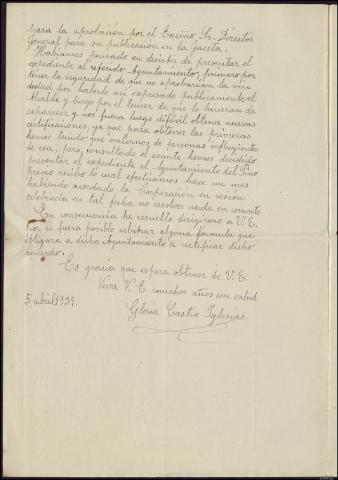 para la aprobación por el Excmo. Sr. Director
General para su publicación en la Gaceta.
Habíamos pensado en desistir de presentar el
expediente al referido Ayuntamiento, primero por
tener la seguridad de que no aprobarían la viu
dedad por haberlo así expresado publicamente el
Alcalde y luego por el temor de que lo hicieran de-
saparecer y nos fuera luego difícil obtener nuevas
certificaciones, ya que para obtener las primeras
hemos tenido que valernos de personas influyentes
de esa; pero, consultado el asunto hemos decidido
presentar el expediente al Ayuntamiento del Pino
previo recibo lo cual efectuamos hace un mes
habiendo acordado la Corporación en sesión
celebrada en tal fecha no resolver nada en concreto
En consecuencia he resuelto dirigirme a V. E.
por si fuera posible arbitrar alguna fórmula que
obligara a dicho Ayuntamiento a rectificar dicho
acuerdo.
Es gracia que espera obtener de V. E.
Viva V. E. muchos años con salud
5 abril 1939.
Gloria Castro Iglesias